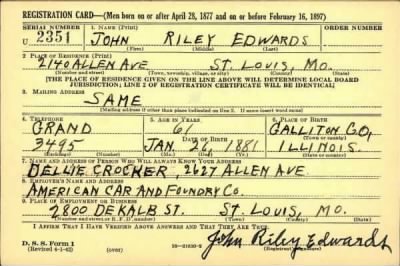 REGISTRATION CARD—(Men born on or after April 28, 1877 and on or before February 16, 1897)
SERIAL NUMBER 1. NAME (Print) ORDER NUMBER
U 2351 JOHN RILEY EDWARDS
(First) (Middle) (Last)
2. PLACE OF RESIDENCE (Print)
2140 ALLEN AVE ST. LOUIS, MO.
(Number and street) (Town, township, village, or city) (County) (State)
[THE PLACE OF RESIDENCE GIVEN ON THE LINE ABOVE WILL DETERMINE LOCAL BOARD
JURISDICTION; LINE 2 OF REGISTRATION CERTIFICATE WILL BE IDENTICAL]
3. MAILING ADDRESS
SAME
(Mailing address if other than place indicated on line 2. If same insert word same)
4. TELEPHONE 5. AGE IN YEARS 6. PLACE OF BIRTH
GRAND 61 GALLITON CO,
DATE OF BIRTH (Town or county)
3495 JAN. 26, 1881 ILLINOIS.
(Exchange) (Number) (Mo.) (Day) (Yr.) (State or country)
7. NAME AND ADDRESS OF PERSON WHO WILL ALWAYS KNOW YOUR ADDRESS
DELLIE CROCKER, 2627 ALLEN AVE
8. EMPLOYER'S NAME AND ADDRESS
AMERICAN CAR AND FOUNDRY CO.
9. PLACE OF EMPLOYMENT OR BUSINESS
2800 DEKALB ST. ST LOUIS, MO.
(Number and street or R. F. D. number) (Town) (County) (State)
I AFFIRM THAT I HAVE VERIFIED ABOVE ANSWERS AND THAT THEY ARE TRUE.
D. S. S. Form 1
(Revised 4-1-42) (over) 16—21630-2 John Riley Edwards